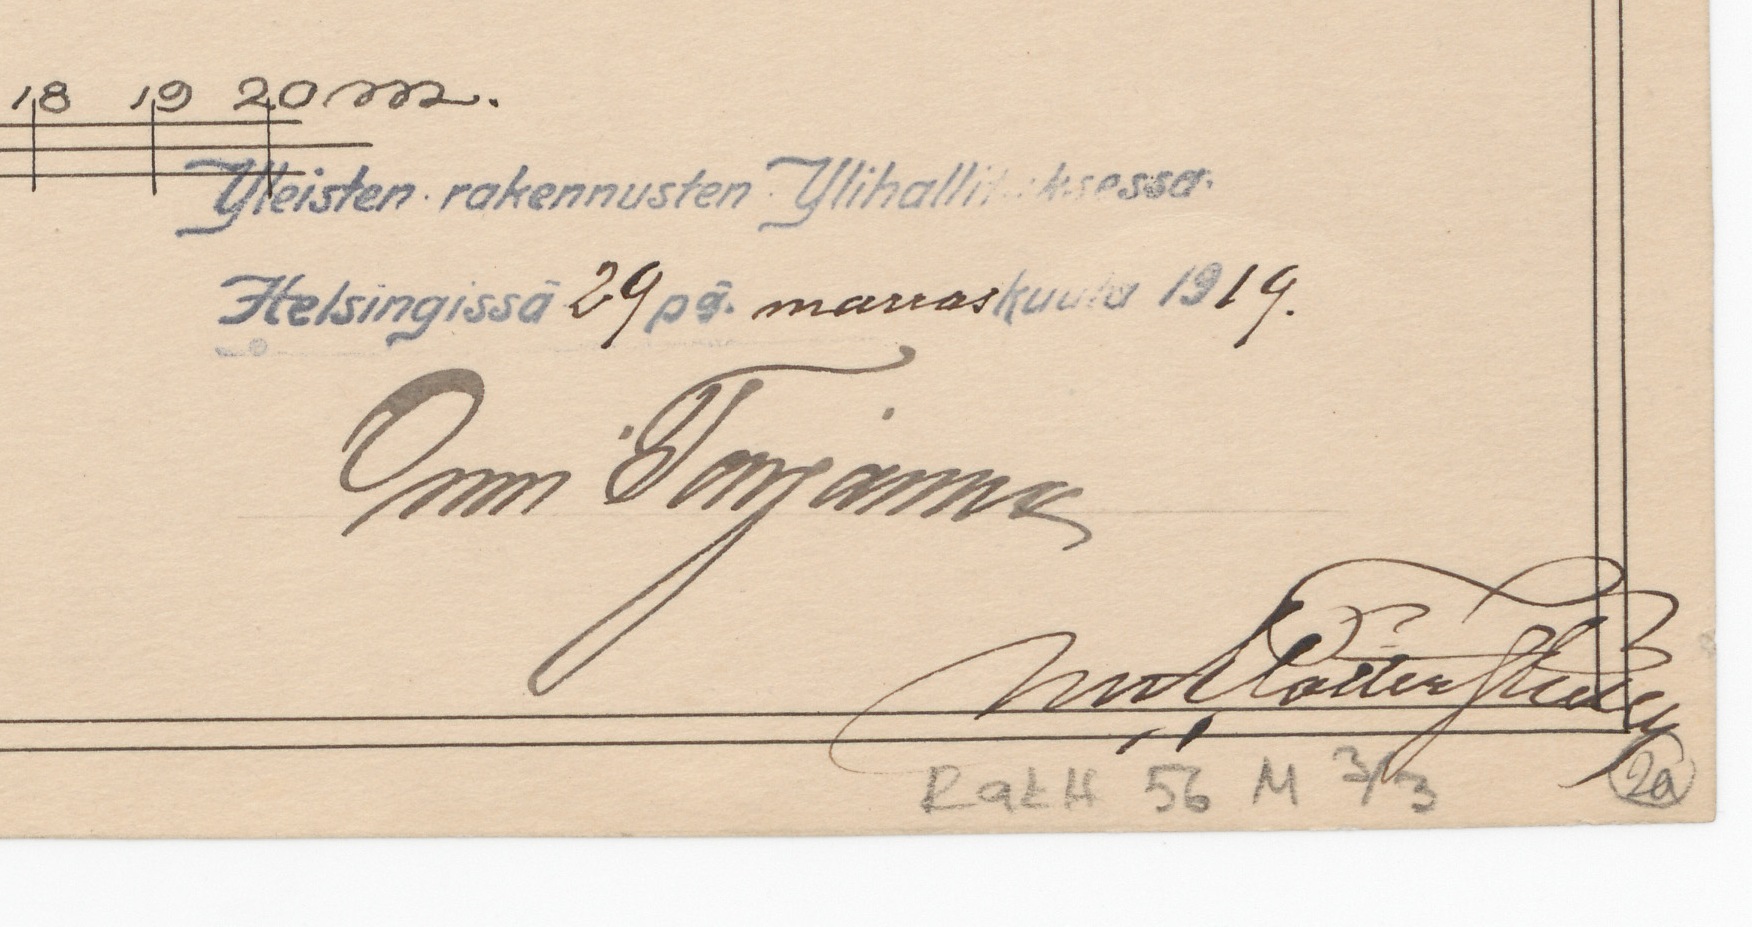 18 19 20 m.
Yleisten rakennusten Ylihallituksessa.
Helsingissä 29 pä. marraskuuta 1919.
Onni Tarjanne
RakH 56 M 3/3 2a